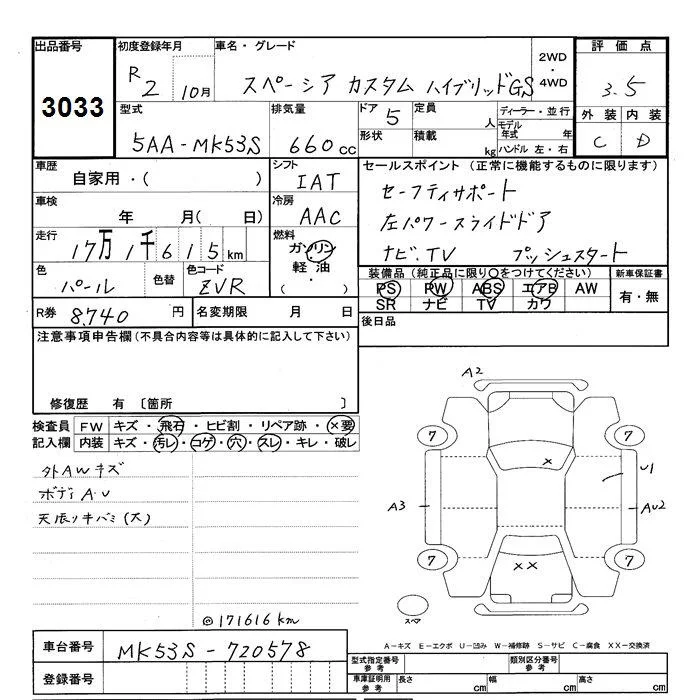 出品番号 初度登録年月 車名・グレード 2WD・4WD 評価点
3033 R2 10月 スペーシア カスタム ハイブリッドGS 3.5
型式 排気量 ドア 5 定員 人 ディーラー・並行 外装 内装
5AA-MK53S 660cc 形状 積載 kg モデル年式 年 C D
ハンドル 左・右
車歴 シフト セールスポイント (正常に機能するものに限ります)
自家用・( ) IAT セーフティサポート
車検 冷房
年 月( 日) AAC 左パワースライドドア
走行 燃料
17万1千615km ガソリン ナビ.TV プッシュスタート
軽油
・( )
色 色替 色コード 装備品 (純正品に限り○をつけてください) 新車保証書
パール ZVR PS PW ABS エアB AW 有・無
SR ナビ TV カワ
R券 8,740 円 名変期限 月 日 後日品
注意事項申告欄 (不具合内容等は具体的に記入して下さい)
修復歴 有 〔箇所 〕
検査員 FW キズ・飛石・ヒビ割・リペア跡・×要
記入欄 内装 キズ・汚レ・コゲ・穴・スレ・キレ・破レ
外AWキズ
ボディA.U
天張リキバミ(大)
◎171616km
A2
7 7
× U1
A3 AU2
7 7
××
スペア
A-キズ E-エクボ U-凹み W-補修跡 S-サビ C-腐食 XX-交換済
車台番号 MK53S-720578
登録番号
型式指定番号 参考 類別区分番号 参考
車庫証明用 参考 長さ cm 幅 cm 高さ cm